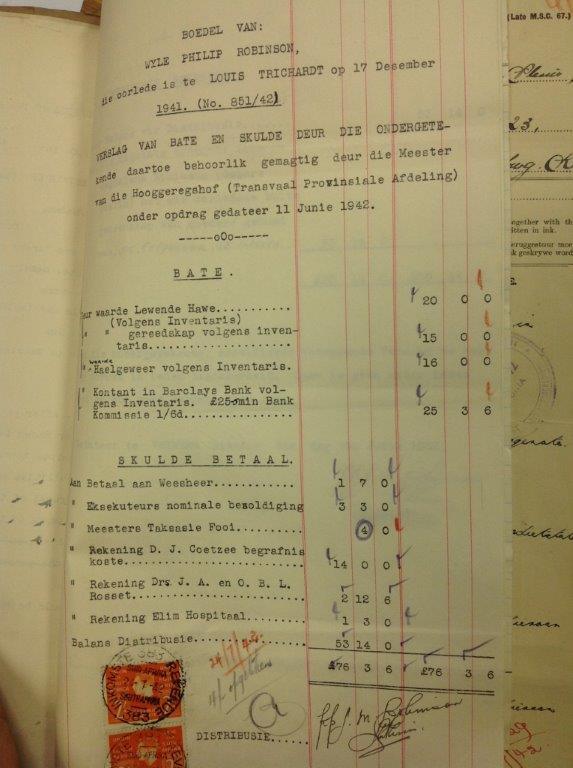 BOEDEL VAN:
WYLE PHILIP ROBINSON,
die oorlede is te LOUIS TRICHARDT op 17 Desember
1941. (No. 851/42)
VERSLAG VAN BATE EN SKULDE DEUR DIE ONDERGETE-
kende daartoe behoorlik gemagtig deur die Meester
van die Hooggeregshof (Transvaal Provinsiale Afdeling)
onder opdrag gedateer 11 Junie 1942.
-----oOo-----
BATE.
waarde Lewende Hawe........... 20 0 0
(Volgens Inventaris)
" " gereedskap volgens inven-
taris..................... 15 0 0
" waarde Haelgeweer volgens Inventaris. 16 0 0
" Kontant in Barclays Bank vol-
gens Inventaris. £25 min Bank
Kommissie 1/6d............... 25 3 6
SKULDE BETAAL.
Aan Betaal aan Weesheer........... 1 7 0
" Eksekuteurs nominale besoldiging 3 3 0
" Meesters Taksasie Fooi.......... 4 0
" Rekening D. J. Coetzee begrafnis
koste......................... 14 0 0
" Rekening Drs. J. A. en O. B. L.
Rosset........................ 2 12 6
" Rekening Elim Hospitaal......... 1 3 0
Balans Distribusie................ 53 14 0
£76 3 6 £76 3 6
DISTRIBUSIE.....
(Late M.S.C. 67.)
23.
together with th
itten in ink.
teruggestuur moe
k geskrywe word
E.